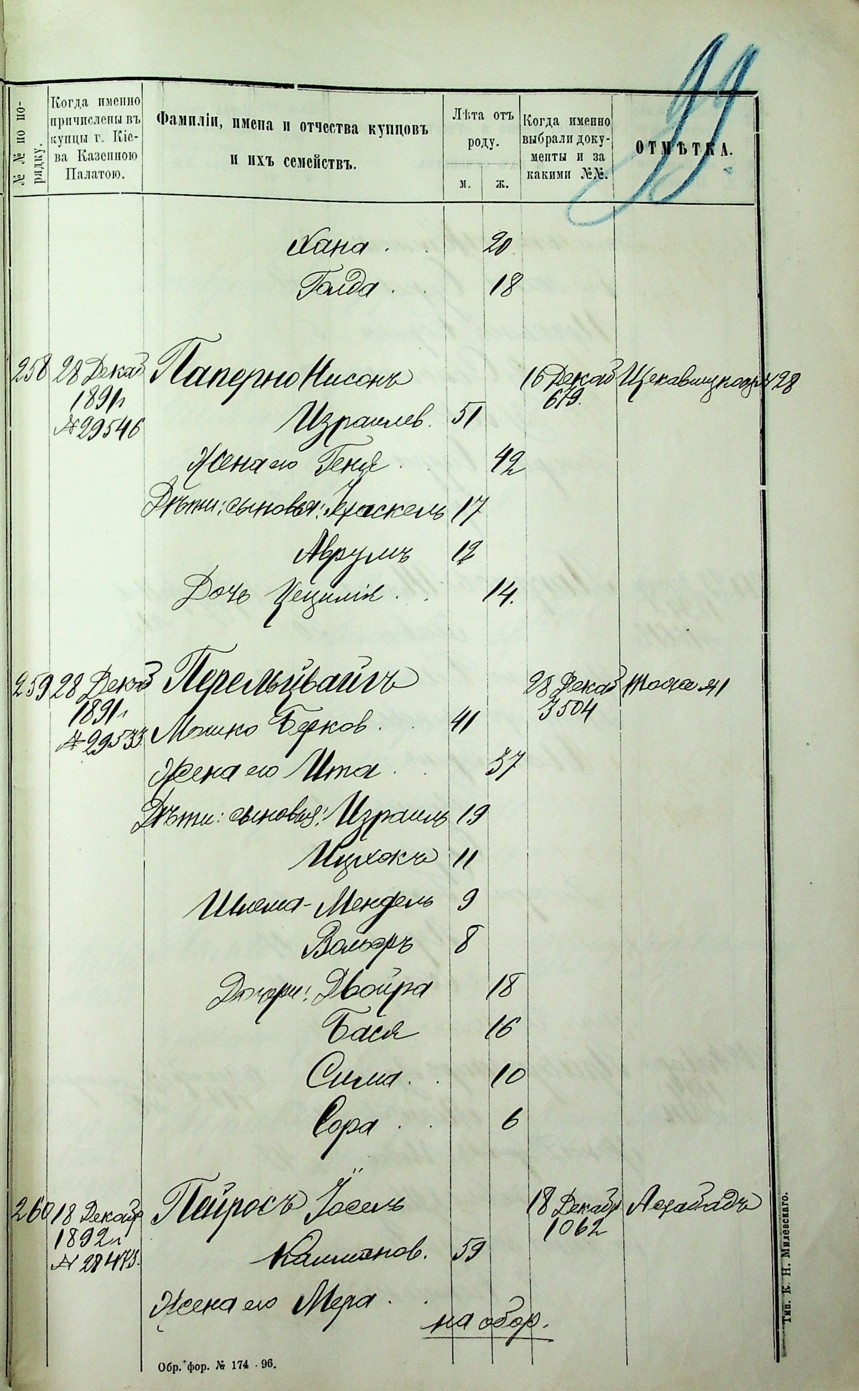 99.
№№ по по-
рядку.
Когда именно
причислены въ
купцы г. Кіе-
ва Казенною
Палатою.
Фамиліи, имена и отчества купцовъ
и ихъ семействъ.
Лѣта отъ
роду.
м.
ж.
Когда именно
выбрали доку-
менты и за
какими №№.
ОТМѢТКА.
Хана . 20
Голда . 18
258 28 Декаб Паперно Нисонъ 16 Декаб 28
1891 г. 679.
№ 29546 Израилев. 51
Жена его Геня . 42
Дѣти: сыновья: Хаскель 17
Аврумъ 12
Дочь Цецилія . . 14.
259 28 Декаб Перельцвайгъ 28 Декаб 41
1891 г. 3504
№ 29533 Мошко Берков. . 41
Жена его Ита . 37
Дѣти: сыновья: Израиль 19
Ицхокъ 11
Шлема-Мендель 9
Вольфъ 8
Дочери: Двойра 18
Бася 16
Сима . . 10
Сора . 6
260 18 Декабр Пейросъ Іосель 18 Декабр Асхабадъ
1892 г. 1062
№ 28473. Калманов. 59
Жена его Мера . .
на обор.
Обр. фор. № 174 - 96.
Тип. К. Н. Милевскаго.